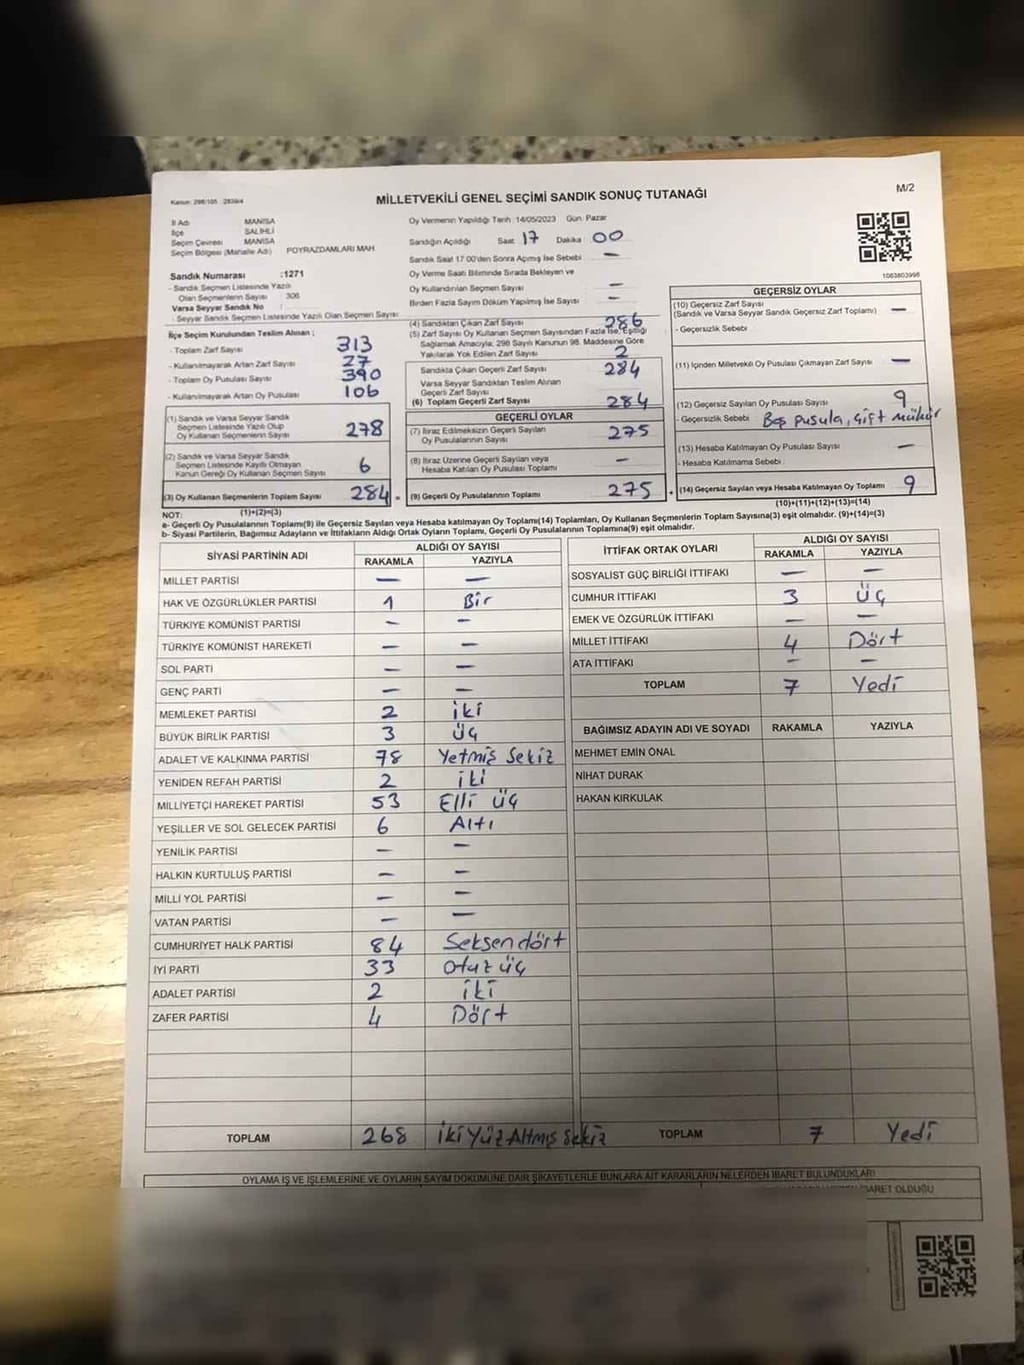 Kanun: 298/105 2839/4
MİLLETVEKİLİ GENEL SEÇİMİ SANDIK SONUÇ TUTANAĞI
M/2
İl Adı MANİSA
İlçe SALİHLİ
Seçim Çevresi MANİSA
Seçim Bölgesi (Mahalle Adı) POYRAZDAMLARI MAH.
Sandık Numarası :1271
- Sandık Seçmen Listesinde Yazılı
Olan Seçmenlerin Sayısı : 306
Varsa Seyyar Sandık No :
- Seyyar Sandık Seçmen Listesinde Yazılı Olan Seçmen Sayısı:
Oy Vermenin Yapıldığı Tarih :14/05/2023 Gün: Pazar
Sandığın Açıldığı Saat 17 Dakika 00
Sandık Saat 17:00'den Sonra Açımış İse Sebebi —
Oy Verme Saati Bitiminde Sırada Bekleyen ve
Oy Kullandırılan Seçmen Sayısı —
Birden Fazla Sayım Döküm Yapılmış İse Sayısı —
1083803998
İlçe Seçim Kurulundan Teslim Alınan ;
- Toplam Zarf Sayısı 313
- Kullanılmayarak Artan Zarf Sayısı 27
- Toplam Oy Pusulası Sayısı 390
- Kullanılmayarak Artan Oy Pusulası 106
(1) Sandık ve Varsa Seyyar Sandık
Seçmen Listesinde Yazılı Olup
Oy Kullanan Seçmenlerin Sayısı 278
(2) Sandık ve Varsa Seyyar Sandık
Seçmen Listesinde Kayıtlı Olmayan
Kanun Gereği Oy Kullanan Seçmen Sayısı 6
(3) Oy Kullanan Seçmenlerin Toplam Sayısı 284 =
(1)+(2)=(3)
(4) Sandıktan Çıkan Zarf Sayısı 286
(5) Zarf Sayısı Oy Kullanan Seçmen Sayısından Fazla İse, Eşitliği
Sağlamak Amacıyla, 298 Sayılı Kanunun 98. Maddesine Göre
Yakılarak Yok Edilen Zarf Sayısı 2
Sandıkta Çıkan Geçerli Zarf Sayısı 284
Varsa Seyyar Sandıktan Teslim Alınan
Geçerli Zarf Sayısı
(6) Toplam Geçerli Zarf Sayısı 284
GEÇERLİ OYLAR
(7) İtiraz Edilmeksizin Geçerli Sayılan
Oy Pusulalarının Sayısı 275
(8) İtiraz Üzerine Geçerli Sayılan veya
Hesaba Katılan Oy Pusulası Toplamı —
(9) Geçerli Oy Pusulalarının Toplamı 275 +
GEÇERSİZ OYLAR
(10) Geçersiz Zarf Sayısı
(Sandık ve Varsa Seyyar Sandık Geçersiz Zarf Toplamı) —
- Geçersizlik Sebebi
(11) İçinden Milletvekili Oy Pusulası Çıkmayan Zarf Sayısı —
(12) Geçersiz Sayılan Oy Pusulası Sayısı 9
- Geçersizlik Sebebi Boş pusula, çift mühür
(13) Hesaba Katılmayan Oy Pusulası Sayısı —
- Hesaba Katılmama Sebebi :
(14) Geçersiz Sayılan veya Hesaba Katılmayan Oy Toplamı 9
(10)+(11)+(12)+(13)=(14)
NOT:
a- Geçerli Oy Pusulalarının Toplamı(9) ile Geçersiz Sayılan veya Hesaba katılmayan Oy Toplamı(14) Toplamları, Oy Kullanan Seçmenlerin Toplam Sayısına(3) eşit olmalıdır. (9)+(14)=(3)
b- Siyasi Partilerin, Bağımsız Adayların ve İttifakların Aldığı Ortak Oyların Toplamı, Geçerli Oy Pusulalarının Toplamına(9) eşit olmalıdır.
SİYASİ PARTİNİN ADI ALDIĞI OY SAYISI
RAKAMLA YAZIYLA
MİLLET PARTİSİ — —
HAK VE ÖZGÜRLÜKLER PARTİSİ 1 Bir
TÜRKİYE KOMÜNİST PARTİSİ — —
TÜRKİYE KOMÜNİST HAREKETİ — —
SOL PARTİ — —
GENÇ PARTİ — —
MEMLEKET PARTİSİ 2 iki
BÜYÜK BİRLİK PARTİSİ 3 üç
ADALET VE KALKINMA PARTİSİ 78 Yetmiş Sekiz
YENİDEN REFAH PARTİSİ 2 iki
MİLLİYETÇİ HAREKET PARTİSİ 53 Elli üç
YEŞİLLER VE SOL GELECEK PARTİSİ 6 Altı
YENİLİK PARTİSİ — —
HALKIN KURTULUŞ PARTİSİ — —
MİLLİ YOL PARTİSİ — —
VATAN PARTİSİ — —
CUMHURİYET HALK PARTİSİ 84 Seksen dört
İYİ PARTİ 33 Otuz üç
ADALET PARTİSİ 2 iki
ZAFER PARTİSİ 4 Dört
TOPLAM 268 iki Yüz Altmış Sekiz
İTTİFAK ORTAK OYLARI ALDIĞI OY SAYISI
RAKAMLA YAZIYLA
SOSYALİST GÜÇ BİRLİĞİ İTTİFAKI — —
CUMHUR İTTİFAKI 3 üç
EMEK VE ÖZGÜRLÜK İTTİFAKI — —
MİLLET İTTİFAKI 4 Dört
ATA İTTİFAKI — —
TOPLAM 7 Yedi
BAĞIMSIZ ADAYIN ADI VE SOYADI RAKAMLA YAZIYLA
MEHMET EMİN ÖNAL
NİHAT DURAK
HAKAN KIRKULAK
TOPLAM 7 Yedi
OYLAMA İŞ VE İŞLEMLERİNE VE OYLARIN SAYIM DÖKÜMÜNE DAİR ŞİKAYETLERLE BUNLARA AİT KARARLARIN NELERDEN İBARET BULUNDUKLARI
BARET OLDUĞU